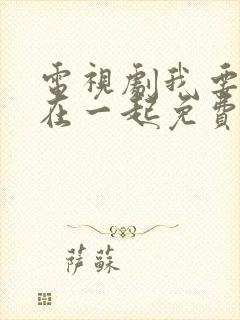 電視劇我要
在一起免費
薩蘇